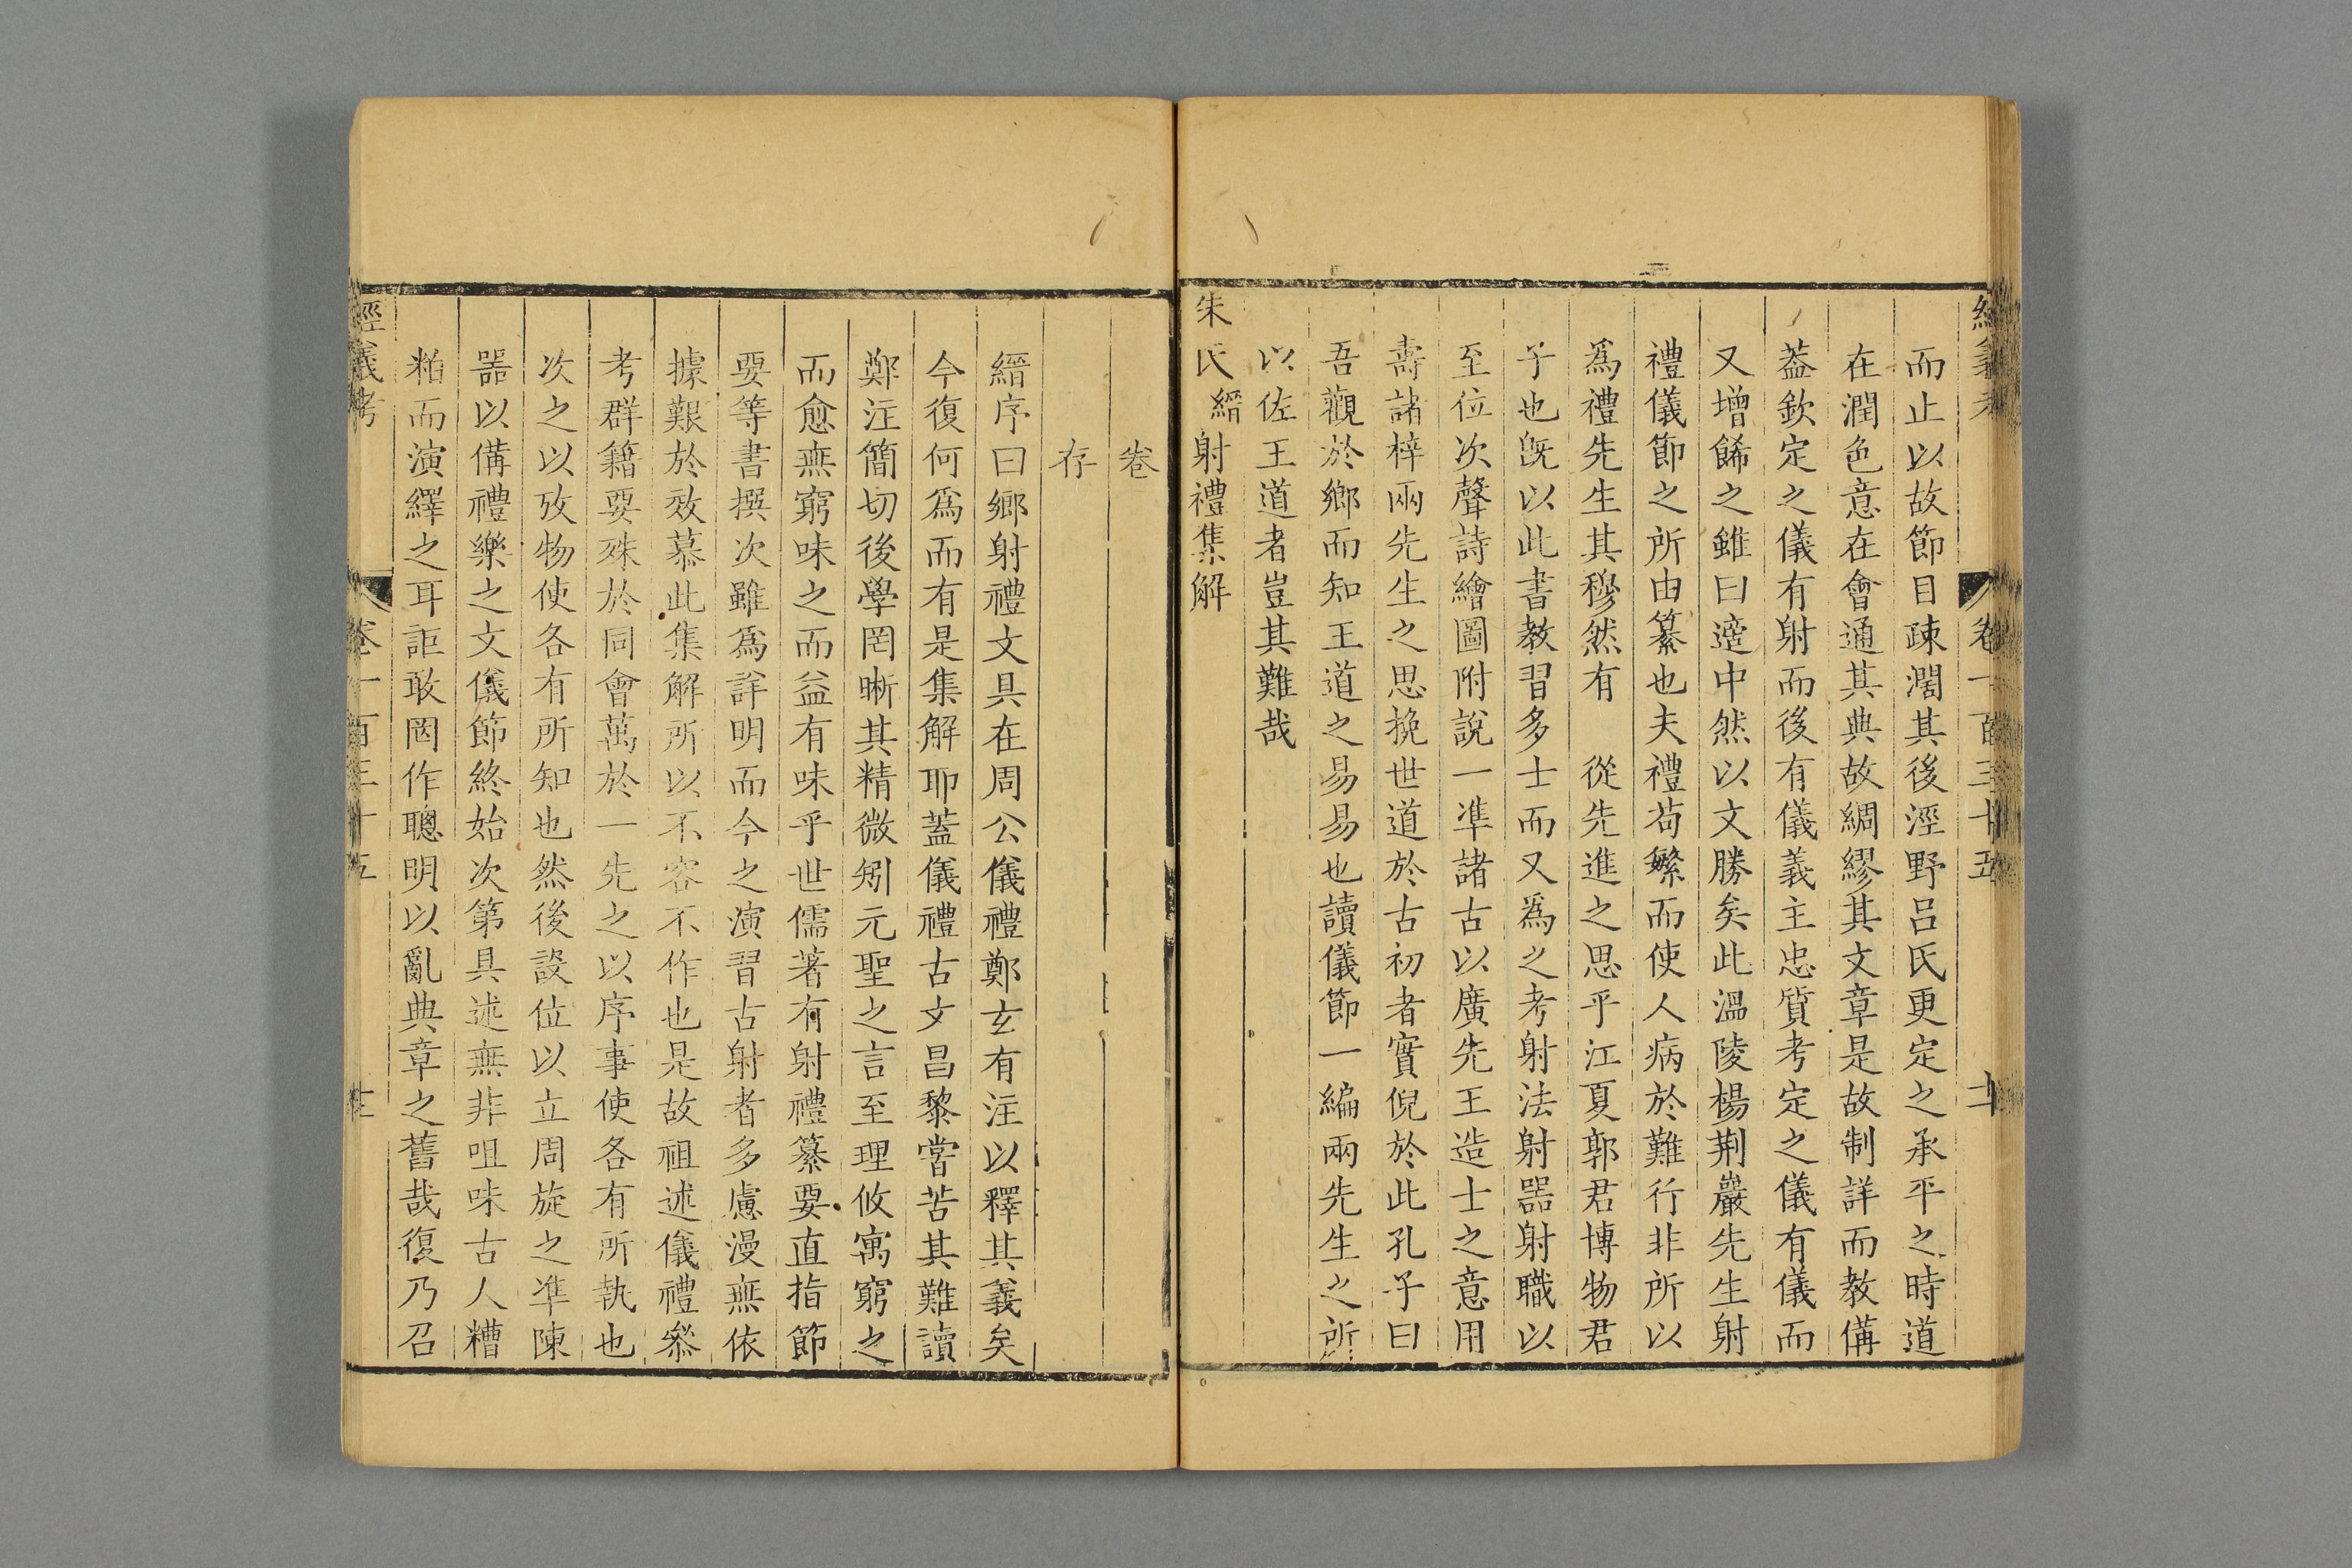 經義考 卷一百三十五 十
而止以故節目踈濶其後涇野呂氏更定之承平之時道
在潤色意在會通其典故綢繆其文章是故制詳而教備
葢欽定之儀有射而後有儀義主忠質考定之儀有儀而
又增餙之雖曰遵中然以文勝矣此溫陵楊荆巖先生射
禮儀節之所由纂也夫禮苟繁而使人病於難行非所以
爲禮先生其穆然有 從先進之思乎江夏郭君博物君
子也旣以此書教習多士而又爲之考射法射器射職以
至位次聲詩繪圖附說一準諸古以廣先王造士之意用
壽諸梓兩先生之思挽世道於古初者實倪於此孔子曰
吾觀於鄉而知王道之易易也讀儀節一編兩先生之所
以佐王道者豈其難哉
朱氏縉射禮集解
卷
存
縉序曰鄉射禮文具在周公儀禮鄭玄有注以釋其義矣
今復何爲而有是集解耶蓋儀禮古文昌黎甞苦其難讀
鄭注簡切後學罔晰其精微矧元聖之言至理攸寓窮之
而愈無窮味之而益有味乎世儒著有射禮纂要直指節
要等書撰次雖爲詳明而今之演習古射者多慮漫無依
據艱於效慕此集解所以不容不作也是故祖述儀禮叅
考群籍要殊於同會萬於一先之以序事使各有所執也
次之以攷物使各有所知也然後設位以立周旋之準陳
器以備禮樂之文儀節終始次第具述無非咀味古人糟
粕而演繹之耳詎敢罔作聰明以亂典章之舊哉復乃召
經義考 卷一百三十五